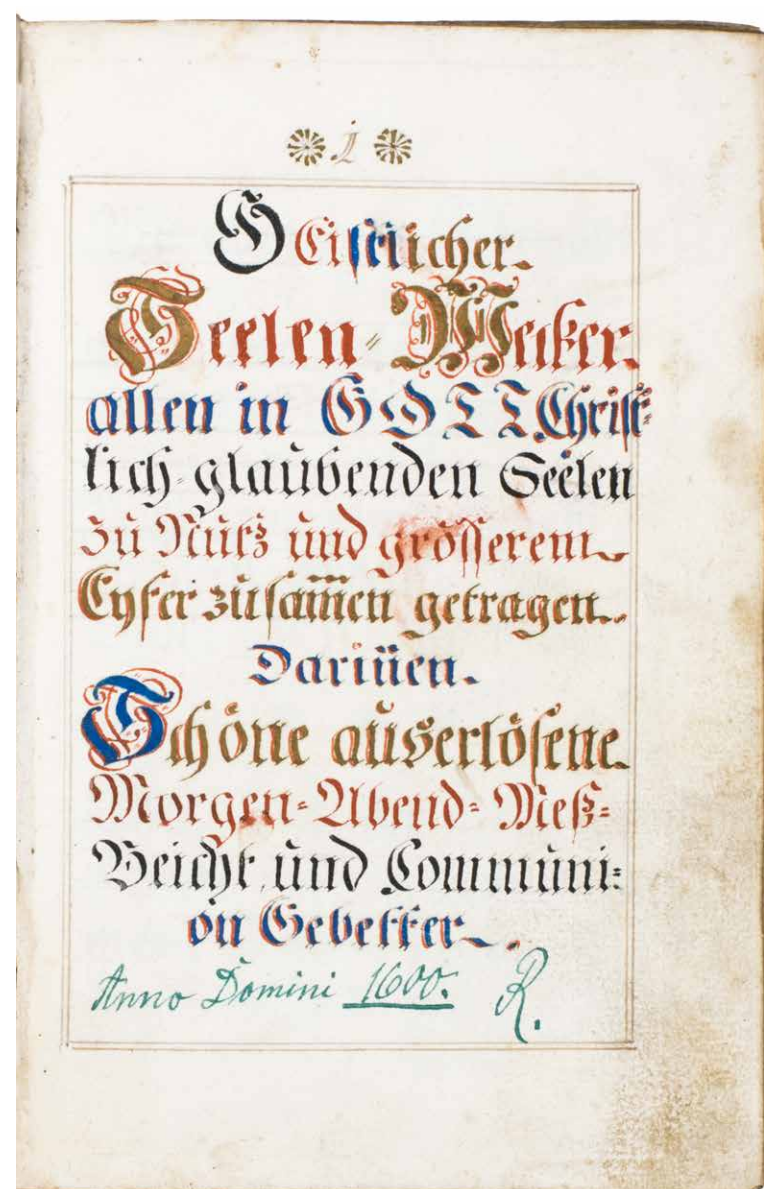 1
GEistlicher.
Seelen-Wecker.
allen in GOTT Christ-
lich-glaübenden Seelen
zü Nütz ünd grösserem
Eyfer züsam̅en getragen.
Dariñen.
Schöne aüserlösene
Morgen-Abend-Meß-
Beicht ünd Commüni-
on Gebetter.
Anno Domini 1600. R.